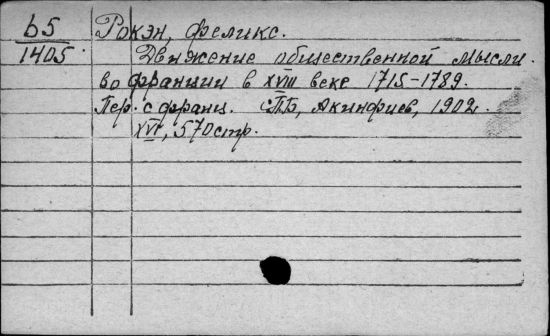 Ь5 Рокэн, Феликс.
1405 Движение общественной мысли.
во Франции в XVIII веке 1715-1789.
Пер. с франц. СПБ, Акинфиев, 1902.
XVI, 570 стр.